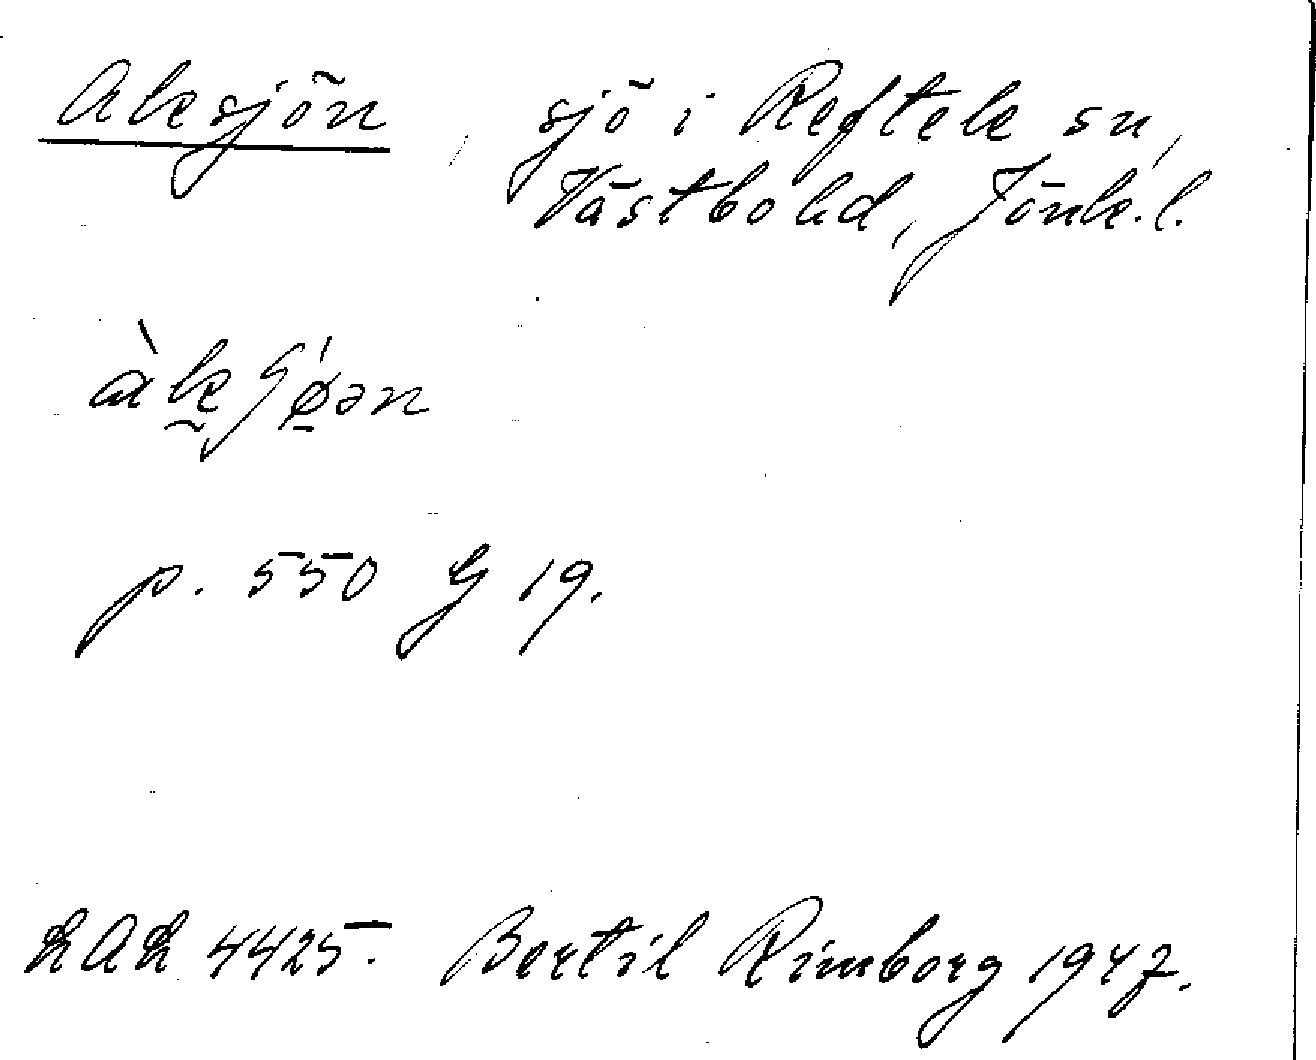 Aksjön, sjö i Reftele sn,
Västbo hd, Jönk. l.
p. 550 G 19.
LAL 4425. Bertil Rimborg 1947.